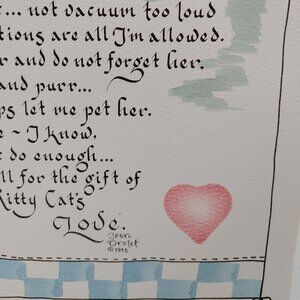 ... not vacuum too loud
tions are all I'm allowed.
r and do not forget her.
and purr...
ps let me pet her.
e ~ I know,
t do enough...
ll for the gift of
Kitty Cat's
Love.
Jean
Drolet
©1993